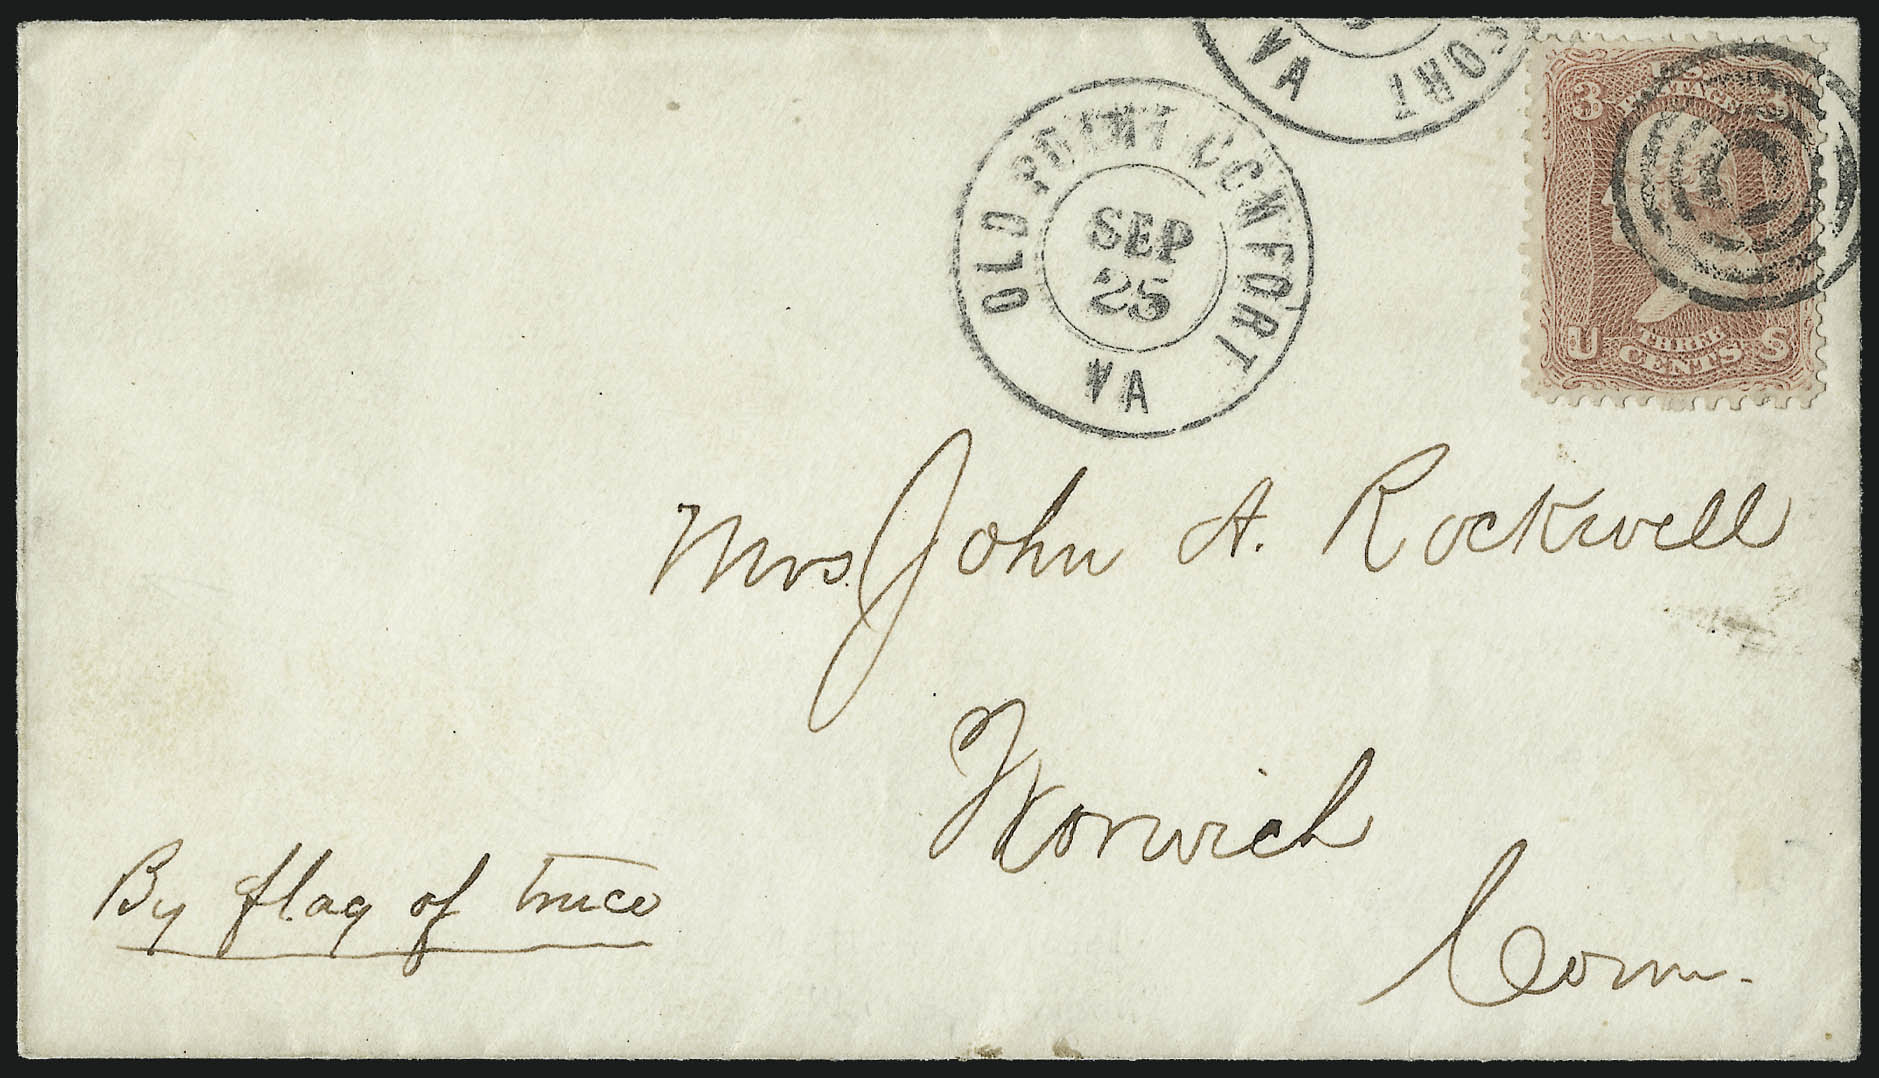 VA ORT
OLD POINT COMFORT
SEP
25
VA
3 3
U.S.
POSTAGE
U S
THREE
CENTS
Mrs. John A. Rockwell
Norwich
Conn.
By flag of truce